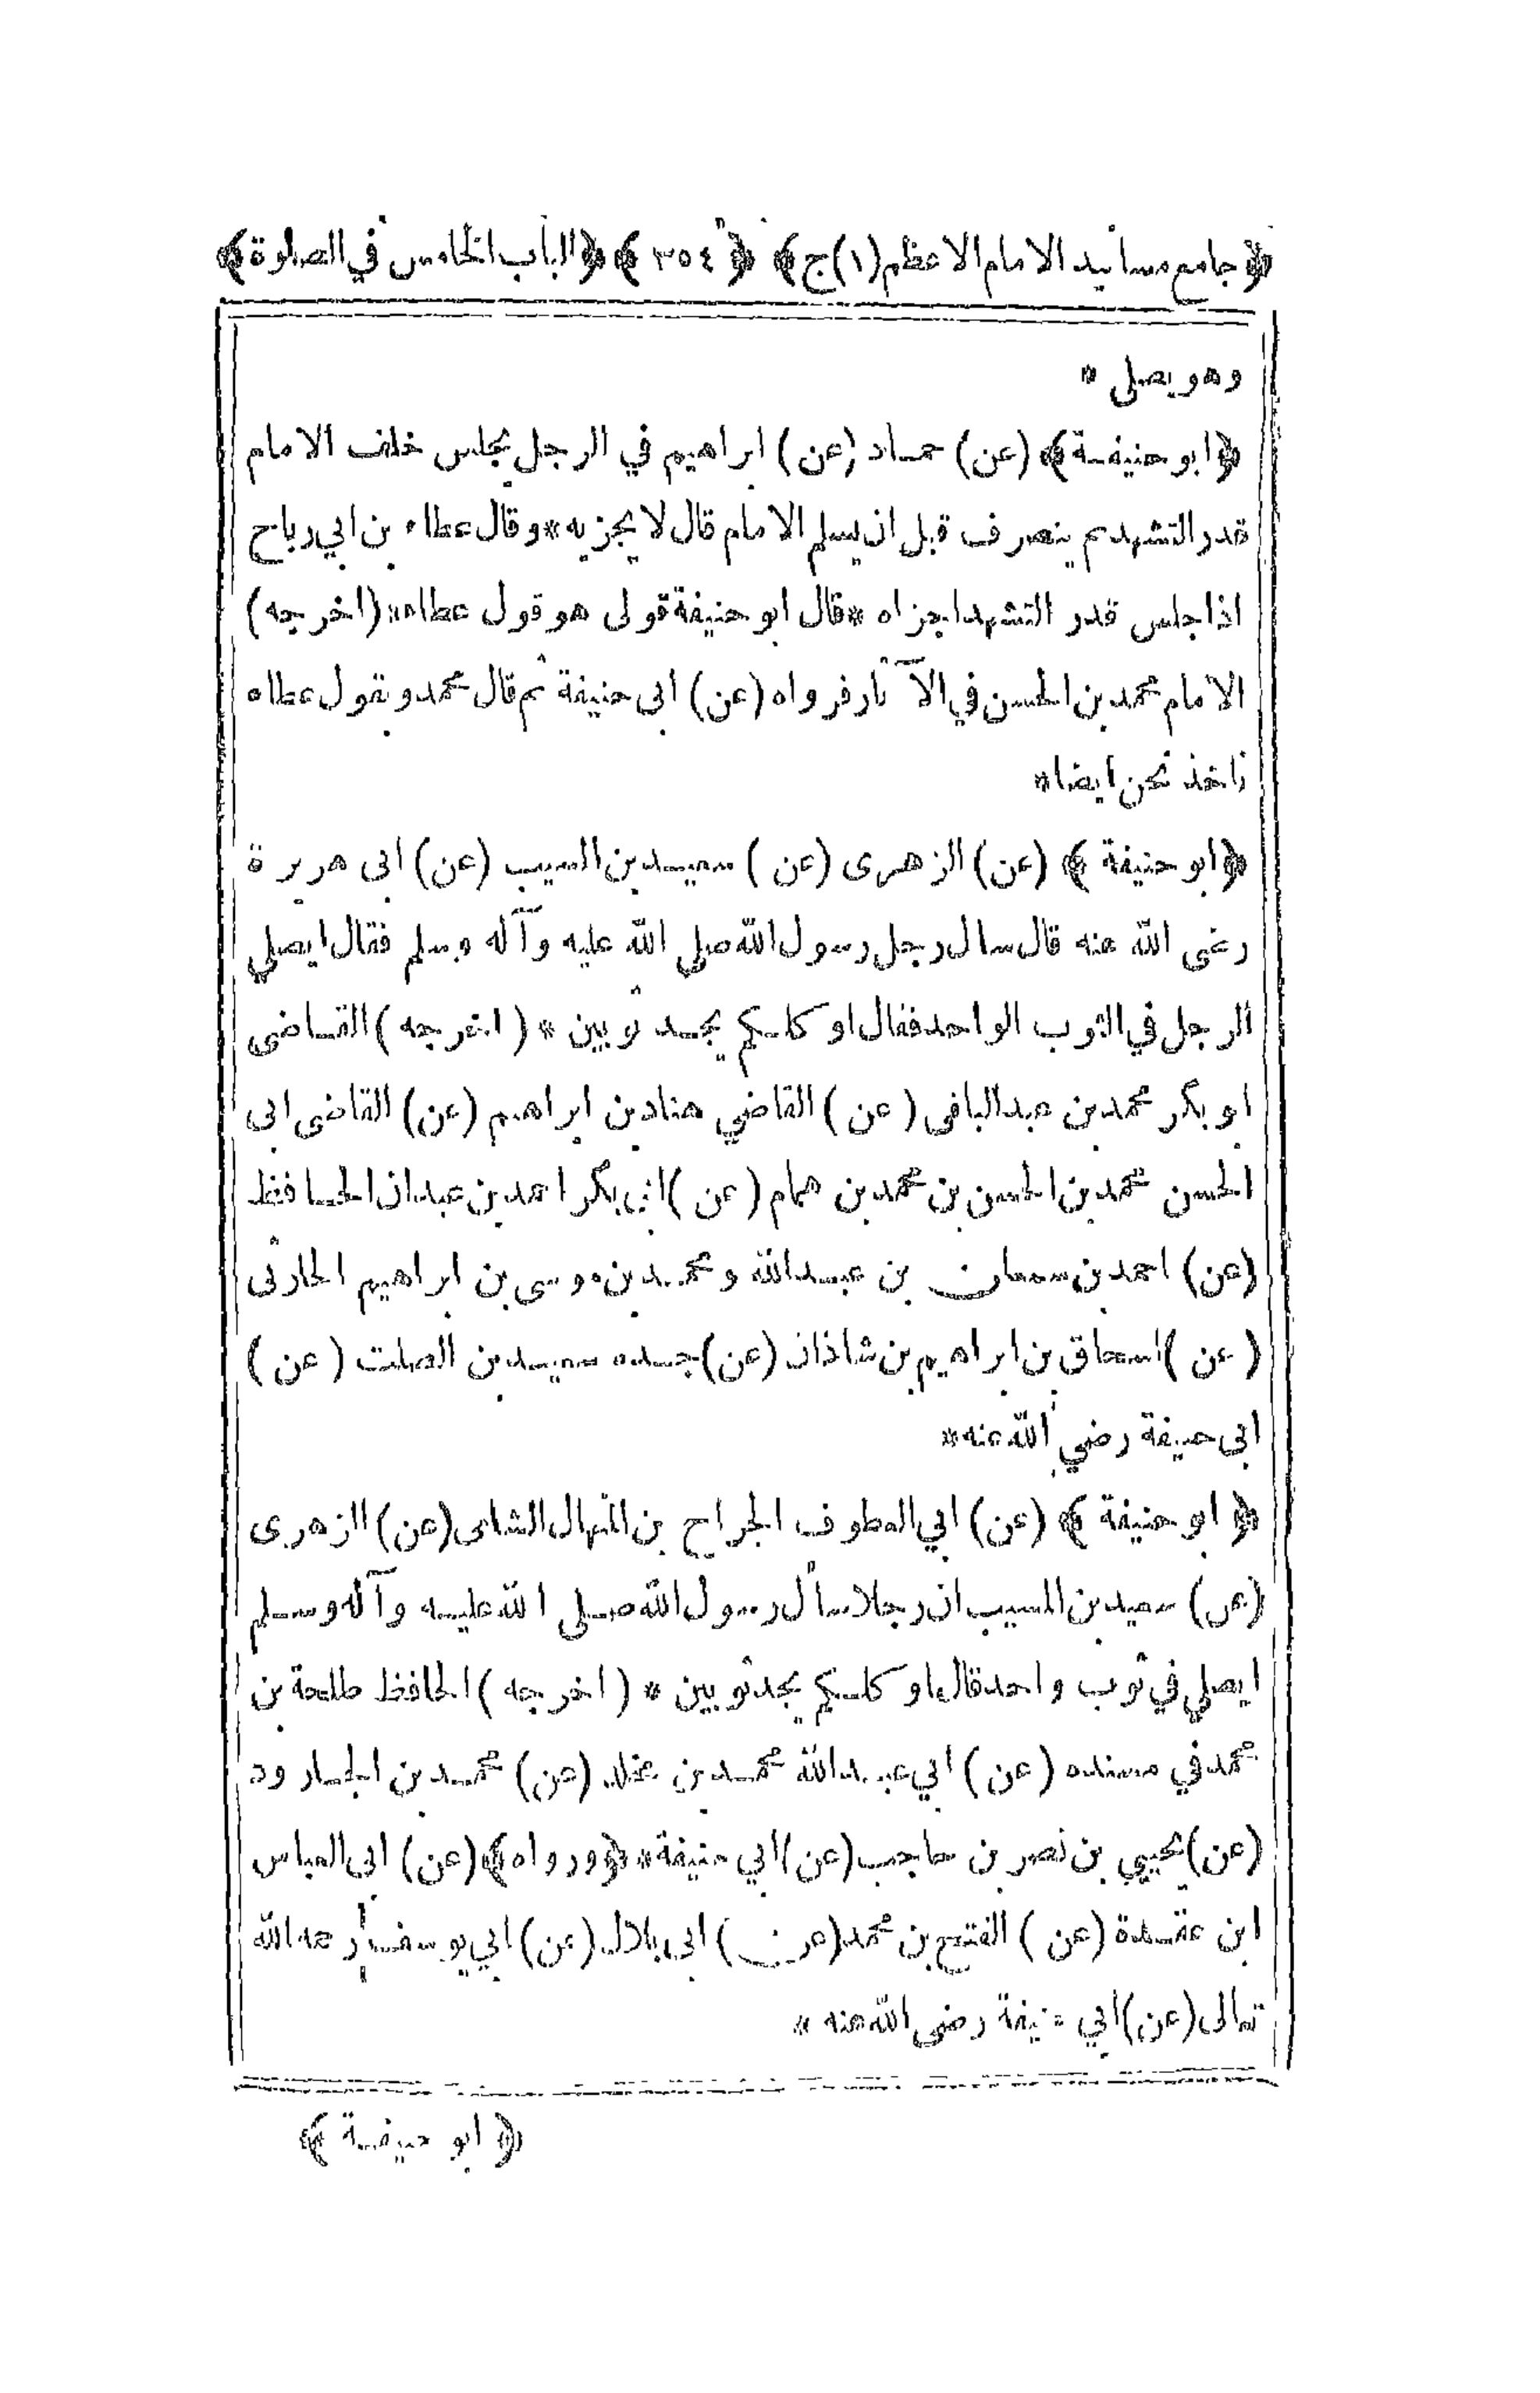 ﴿جامع مسانيد الامام الاعظم(١)ج﴾ ﴿٣٥٤﴾ ﴿الباب الخامس في الصلوة﴾
وهو يصلى *
﴿ابو حنيفة﴾ (عن) حماد (عن) ابراهيم في الرجل يجلس خلف الامام
قدر التشهد ثم ينصرف قبل ان يسلم الامام قال لا يجزيه * وقال عطاء بن ابي رباح
اذا جلس قدر التشهد اجزاه * قال ابو حنيفة قولى هو قول عطاء * (اخرجه)
الامام محمد بن الحسن في الآثار فرواه (عن) ابى حنيفة ثم قال محمد وبقول عطاء
ناخذ نحن ايضا *
﴿ابو حنيفة﴾ (عن) الزهرى (عن) سعيد بن المسيب (عن) ابى هريرة
رضى الله عنه قال سال رجل رسول الله صلى الله عليه وآله وسلم فقال ايصلي
الرجل في الثوب الواحد فقال او كلكم يجد ثوبين * (اخرجه) القاضى
ابو بكر محمد بن عبد الباقى (عن) القاضي هناد بن ابراهيم (عن) القاضى ابى
الحسن محمد بن الحسن بن محمد بن همام (عن) ابى بكر احمد بن عبدان الحافظ
(عن) احمد بن سمعان بن عبد الله ومحمد بن موسى بن ابراهيم الحارثى
(عن) اسحاق بن ابراهيم بن شاذان (عن) جده سعيد بن الصلت (عن)
ابى حنيفة رضي الله عنه *
﴿ابو حنيفة﴾ (عن) ابي العطوف الجراح بن المنهال الشامى (عن) الزهرى
(عن) سعيد بن المسيب ان رجلا سأل رسول الله صلى الله عليه وآله وسلم
ايصلي في ثوب واحد قال او كلكم يجد ثوبين * (اخرجه) الحافظ طلحة بن
محمد في مسنده (عن) ابي عبد الله محمد بن مخلد (عن) محمد بن الجارود
(عن) يحيى بن نصر بن حاجب (عن) ابي حنيفة * ﴿ورواه﴾ (عن) ابى العباس
ابن عقدة (عن) الفتح بن محمد (عن) ابى بلال (عن) ابي يوسف رحمه الله
تعالى (عن) ابي حنيفة رضى الله عنه *
﴿ابو حنيفة﴾